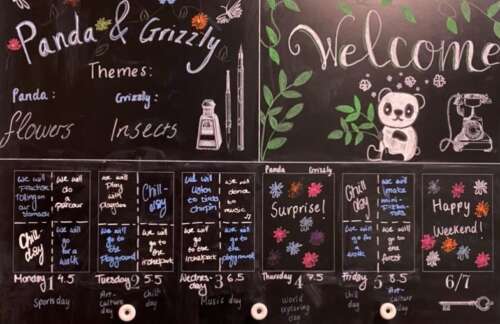 Panda & Grizzly
Welcome
Themes:
Panda:
Grizzly:
flowers
Insects
Panda
Grizzly
we will
on our
stomach
we will
do
parcour
we will
Play
with
playdom
Chill-
day
we will
listen
to birds
chirpin
we will
dance
to
music
Surprise!
Chill
day
we will
make
mini-
Happy
Weekend!
Chill
day
we will
go for
a walk
we will
go to
the
we will
go to
the
playground
we will
go to
the
we will
go to
the
playground
we will
go for
a
walk
we will
go to
the
forest
Monday 1 4.5
Tuesday 2 5.5
Wednes-
day 3 6.5
Thursday 4 7.5
Friday 5 8.5
6/7
Sports day
Art-
culture
day
Chill
day
Music day
world
exploring
day
day
Art-
culture
day